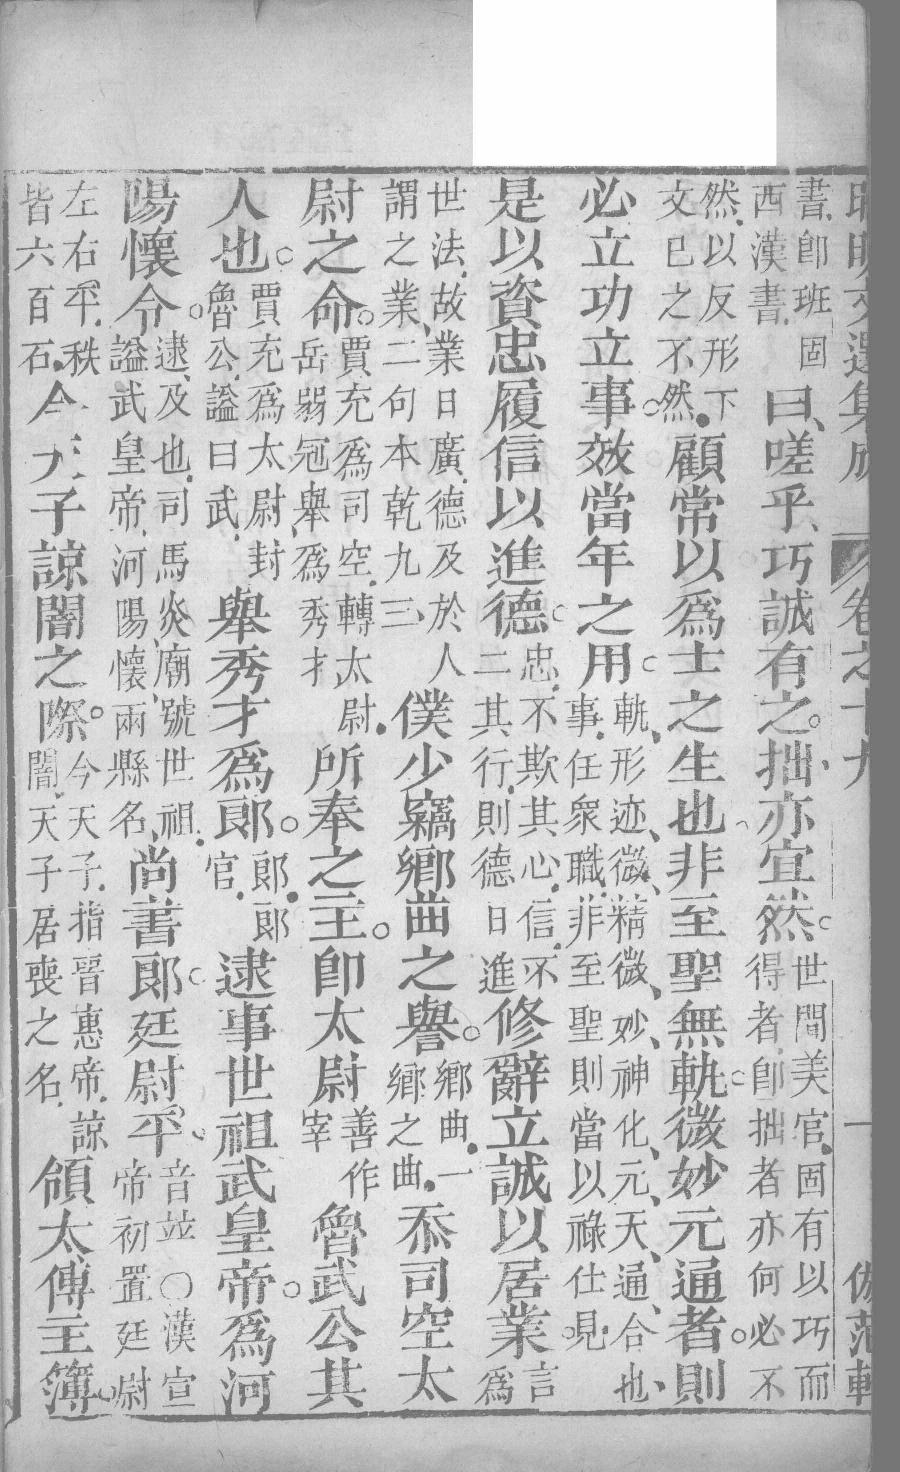 昭明文選集成 卷之十九 一
書、卽班固西漢書、曰、嗟乎、巧誠有之。拙亦宜然。世間美官、固有以巧而得者、卽拙者亦何必不
然、以反形下文已之不然、顧常以爲士之生也非至聖無軌微妙元通者。則
必立功立事。效當年之用。軌、形迹、微、精微、妙、神化、元、天、通、合也、事、任衆職、非至聖則當以祿仕見、
是以資忠履信以進德。忠、不欺其心、信、不二其行、則德日進修辭立誠以居業。言爲
世法、故業日廣、德及於人謂之業、二句本乾九三、僕少竊鄉曲之譽。鄉曲、一鄉之曲、忝司空太
尉之命。賈充爲司空、轉太尉、岳弱冠舉、爲秀才所奉之主。卽太尉善作宰魯武公其
人也。賈充爲太尉、封魯公、謚曰武、舉秀才爲郎。郎、郎官、逮事世祖武皇帝。爲河
陽懷令。逮、及也、司馬炎、廟號世祖、謚武皇帝、河陽懷、兩縣名、尚書郎。廷尉平、音並○漢宣帝初置廷尉
左右平、秩皆六百石、今天子諒闇之際。今天子、指晉惠帝、諒闇、天子居喪之名、領太傅主簿。